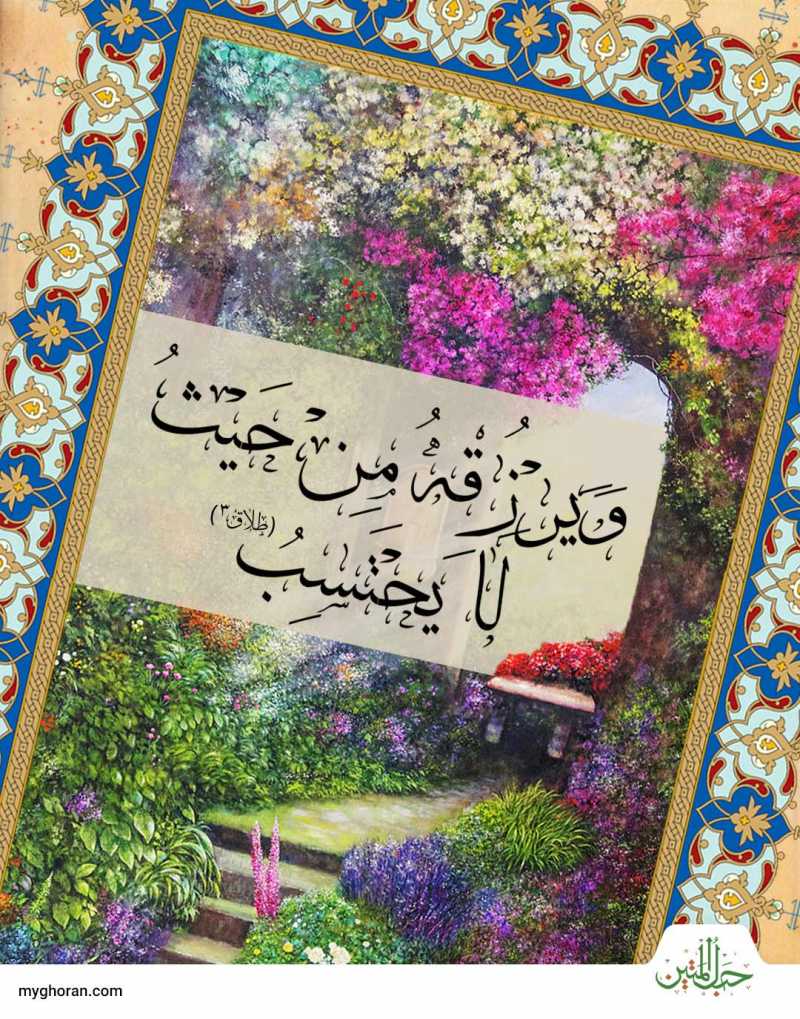 وَيَرْزُقْهُ مِنْ حَيْثُ
لَا يَحْتَسِبُ
(طلاق ۳)
حبل المتین
myghoran.com